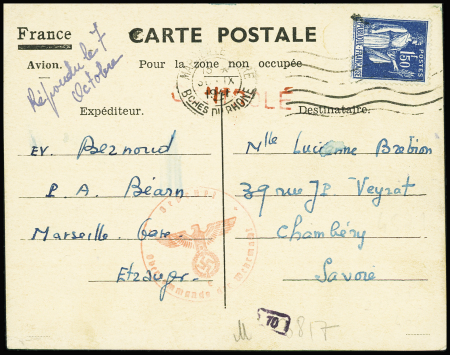 France
CARTE POSTALE
Avion.
Pour la zone non occupée
Répondu le 7
Octobre
Expéditeur:
Destinataire.
POSTES
1F50
BCHES DU RHONE
EV. Bernoud
P. A. Béarn
Marseille Gare
Etranger.
Mlle Lucienne Brebion
39 rue JP Veyrat
Chambéry
Savoie
Geöffnet
Oberkommando der Wehrmacht
10